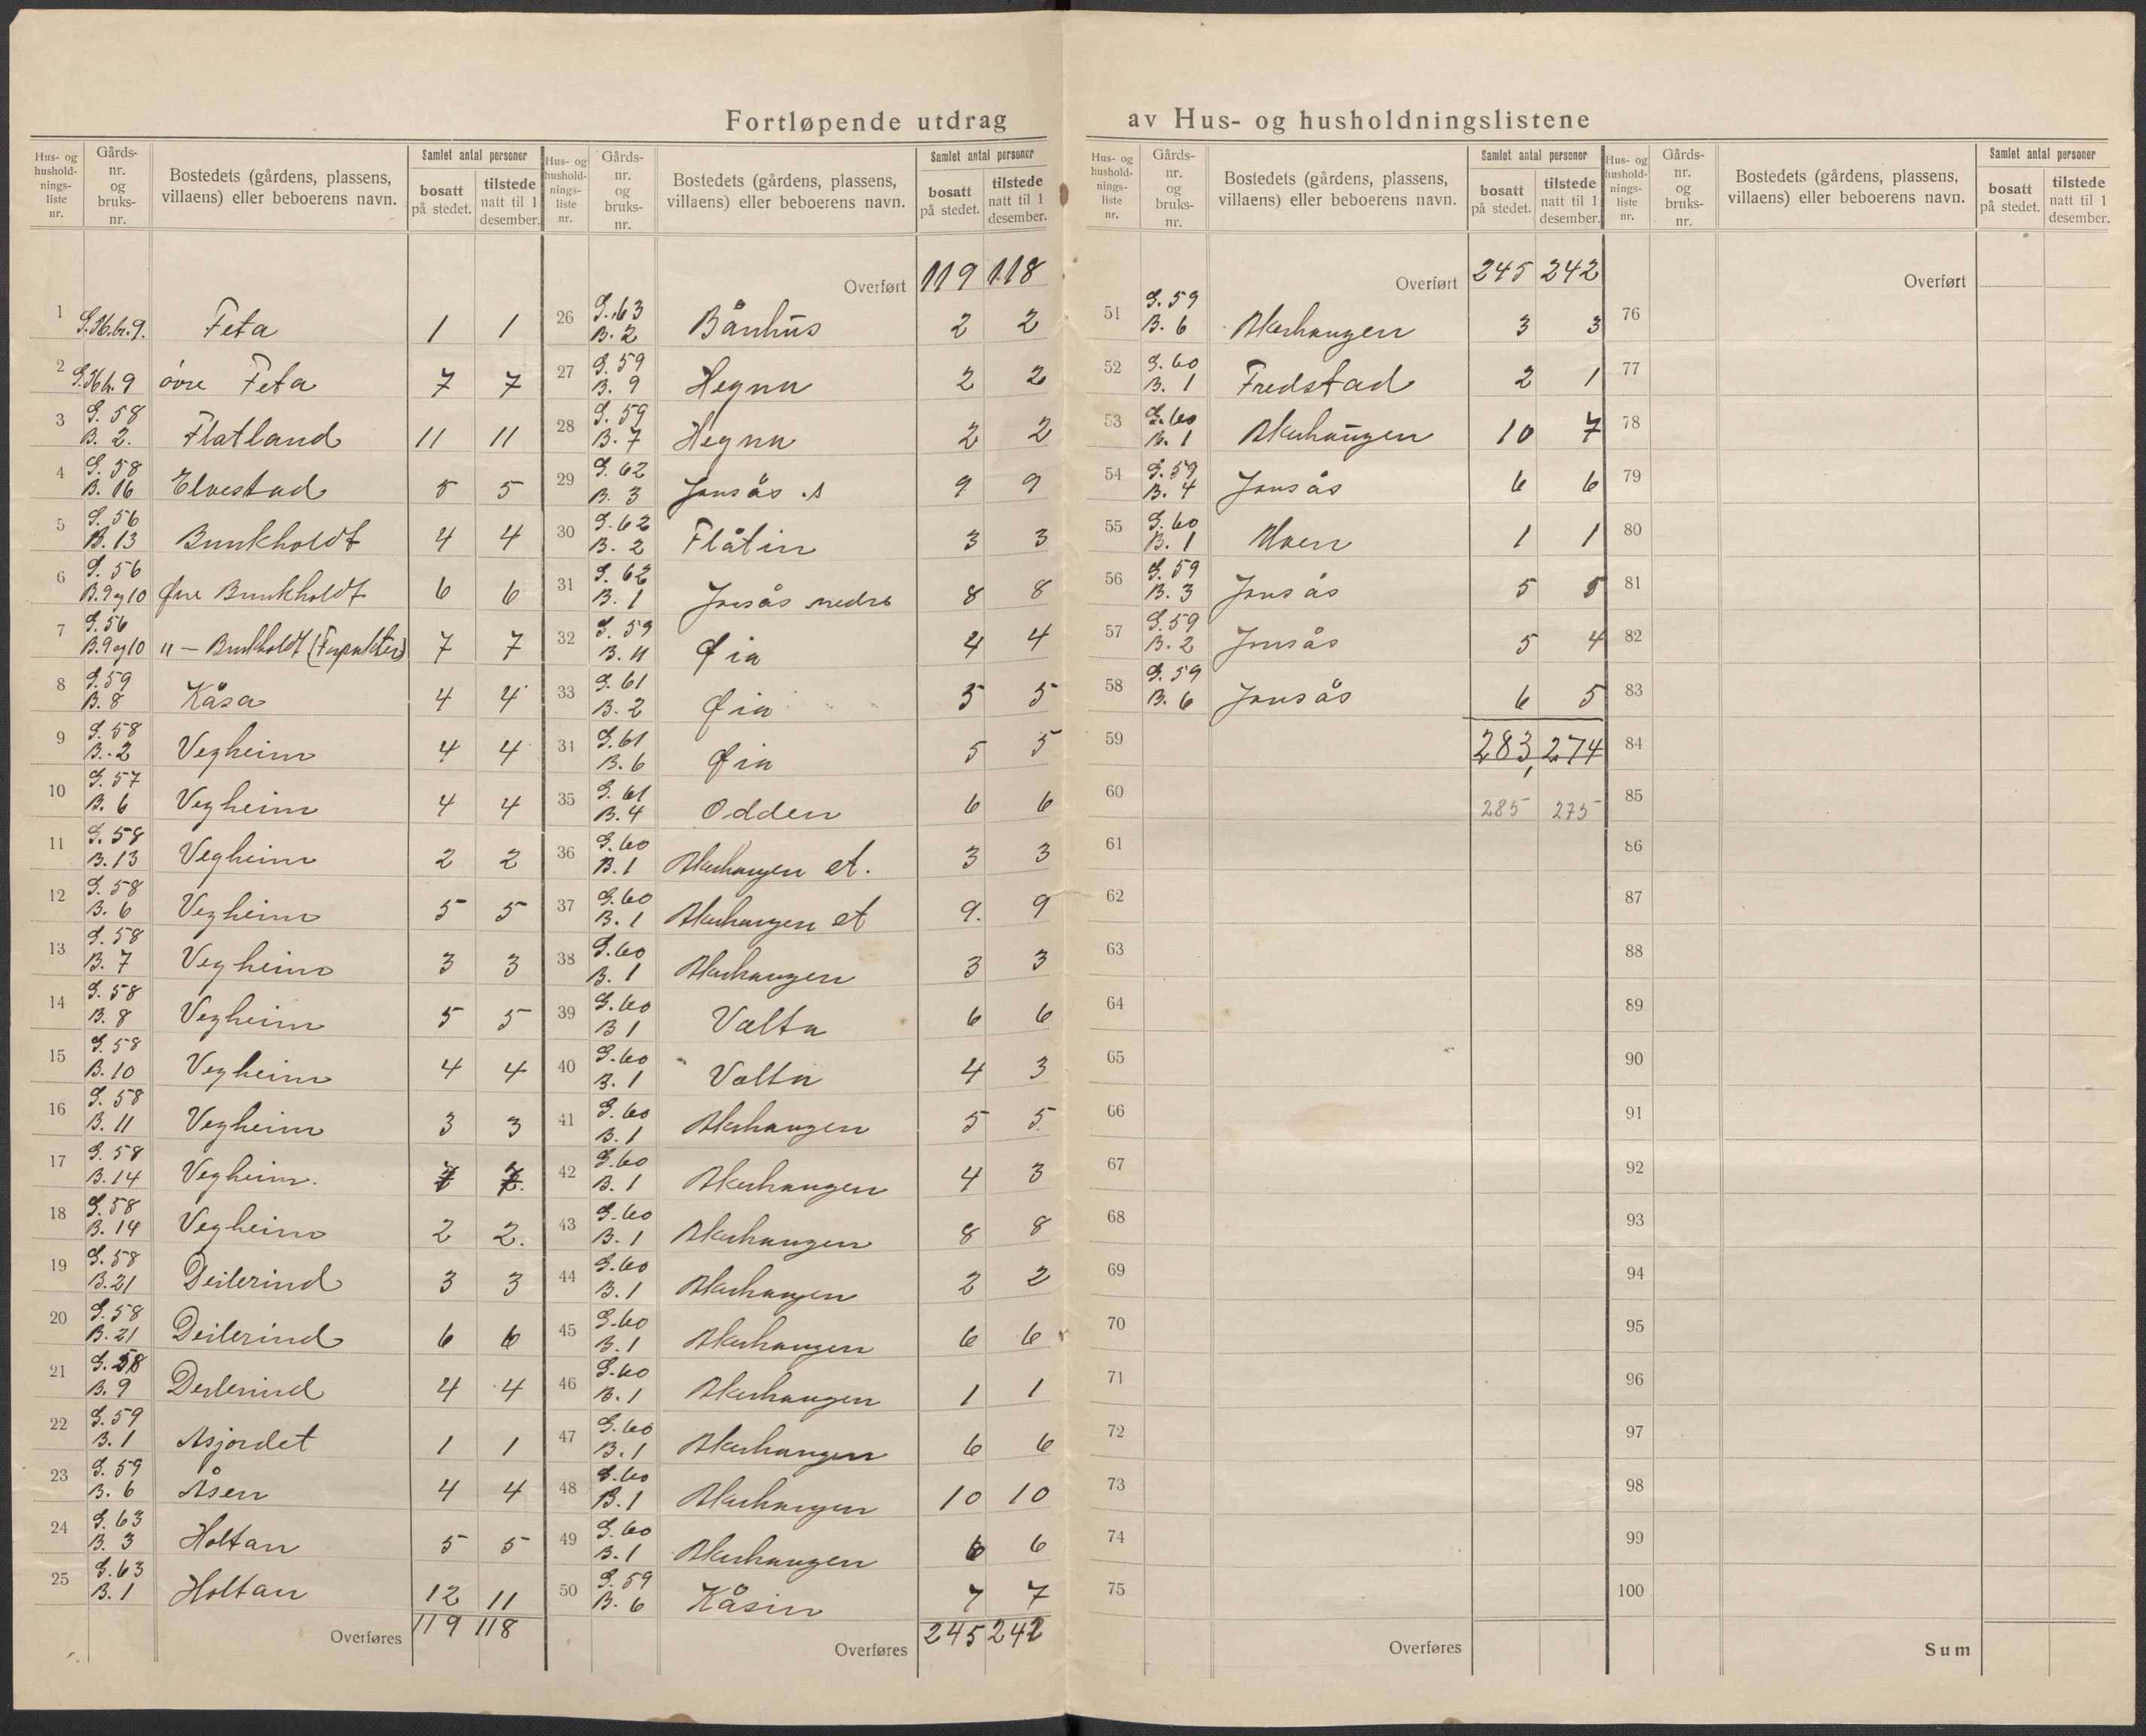 Fortløpende utdrag av Hus- og husholdningslistene
Hus- og hushold-nings-liste nr. Gårds-nr. og bruks-nr. Bostedets (gårdens, plassens, villaens) eller beboerens navn. Samlet antal personer bosatt på stedet. tilstede natt til 1 desember.
1 G.56.br.9. Feta 1 1
2 G.56 br. 9 øvre Feta 7 7
3 G. 58 B. 2. Flatland 11 11
4 G. 58 B. 16 Elvestad 5 5
5 G. 56 B. 13 Bunkholdt 4 4
6 G. 56 B. 9 og 10 Øvre Bunkholdt 6 6
7 G. 56 B. 9 og 10 " — Bunkholdt (Forpakter) 7 7
8 G. 59 B. 8 Kåsa 4 4
9 G. 58 B. 2 Vegheim 4 4
10 G. 57 B. 6 Vegheim 4 4
11 G. 58 B. 13 Vegheim 2 2
12 G. 58 B. 6 Vegheim 5 5
13 G. 58 B. 7 Vegheim 3 3
14 G. 58 B. 8 Vegheim 5 5
15 G. 58 B. 10 Vegheim 4 4
16 G. 58 B. 11 Vegheim 3 3
17 G. 58 B. 14 Vegheim.
18 G. 58 B. 14 Vegheim 2 2.
19 G. 58 B. 21 Deilerind 3 3
20 G. 58 B. 21 Deilerind 6 6
21 G. 58 B. 9 Deilerind 4 4
22 G. 59 B. 1 Asjordet 1 1
23 G. 59 B. 6 Åsen 4 4
24 G. 63 B. 3 Holtan 5 5
25 G. 63 B. 1 Holtan 12 11
Overføres 119 118
Hus- og hushold-nings-liste nr. Gårds-nr. og bruks-nr. Bostedets (gårdens, plassens, villaens) eller beboerens navn. Samlet antal personer bosatt på stedet. tilstede natt til 1 desember.
Overført 119 118
26 G. 63 B. 2 Bånhus 2 2
27 G. 59 B. 9 Hegna 2 2
28 G. 59 B. 7 Hegna 2 2
29 G. 62 B. 3 Jonsås .s 9 9
30 G. 62 B. 2 Flåtin 3 3
31 G. 62 B. 1 Jonsås nedre 8 8
32 G. 59 B. 11 Øia 4 4
33 G. 61 B. 2 Øia 5 5
34 G. 61 B. 6 Øia 5 5
35 G. 61 B. 4 Odden 6 6
36 G. 60 B. 1 Akerhaugen et. 3 3
37 G. 60 B. 1 Akerhaugen et 9. 9
38 G. 60 B. 1 Akerhaugen 3 3
39 G. 60 B 1 Valta 6 6
40 G. 60 B. 1 Valta 4 3
41 G. 60 B. 1 Akerhaugen 5 5
42 G. 60 B. 1 Akerhaugen 4 3
43 G. 60 B. 1 Akerhaugen 8 8
44 G. 60 B. 1 Akerhaugen 2 2
45 G. 60 B. 1 Akerhaugen 6 6
46 G. 60 B. 1 Akerhaugen 1 1
47 G. 60 B. 1 Akerhaugen 6 6
48 G. 60 B. 1 Akerhaugen 10 10
49 G. 60 B. 1 Akerhaugen 6 6
50 G. 59 B. 6 Kåsin 7 7
Overføres 245 242
Hus- og hushold-nings-liste nr. Gårds-nr. og bruks-nr. Bostedets (gårdens, plassens, villaens) eller beboerens navn. Samlet antal personer bosatt på stedet. tilstede natt til 1 desember.
Overført 245 242
51 G. 59 B. 6 Akerhaugen 3 3
52 G. 60 B. 1 Fredstad 2 1
53 G. 60 B. 1 Akerhaugen 10 7
54 G. 59 B. 4 Jonsås 6 6
55 G. 60 B. 1 Moen 1 1
56 G. 59 B. 3 Jonsås 5 5
57 G. 59 B. 2 Jonsås 5 4
58 G. 59 B. 6 Jonsås 6 5
59 283 274
60 285 275
61
62
63
64
65
66
67
68
69
70
71
72
73
74
75
Overføres
Hus- og hushold-nings-liste nr. Gårds-nr. og bruks-nr. Bostedets (gårdens, plassens, villaens) eller beboerens navn. Samlet antal personer bosatt på stedet. tilstede natt til 1 desember.
Overført
76
77
78
79
80
81
82
83
84
85
86
87
88
89
90
91
92
93
94
95
96
97
98
99
100
Sum